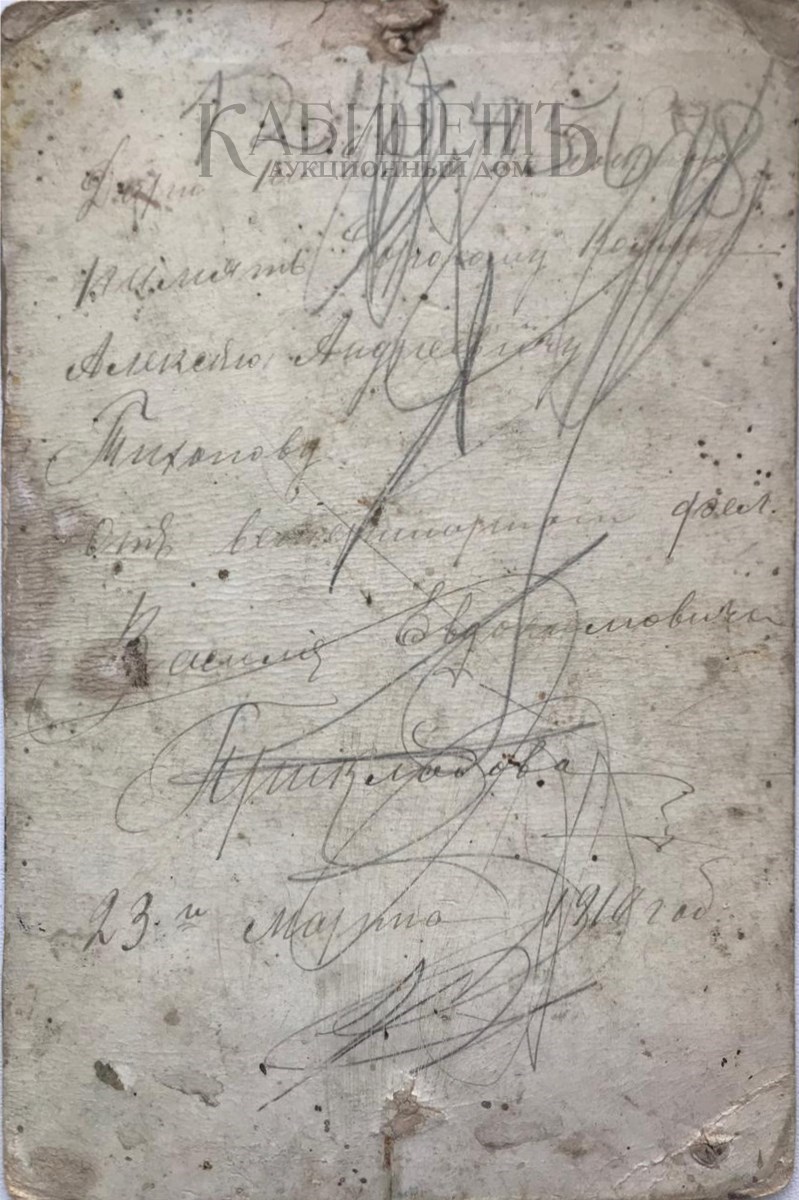 КАБИНЕТЪ
АУКЦИОННЫЙ ДОМ
1 2 3 4 5 6 7 8
Дарю
память Дорогому
Алексею Андреевичу
Тихонову
Отъ ветеринарнаго фел.
Василия Евдокимовича
Прикладова
23-го марта 191 год